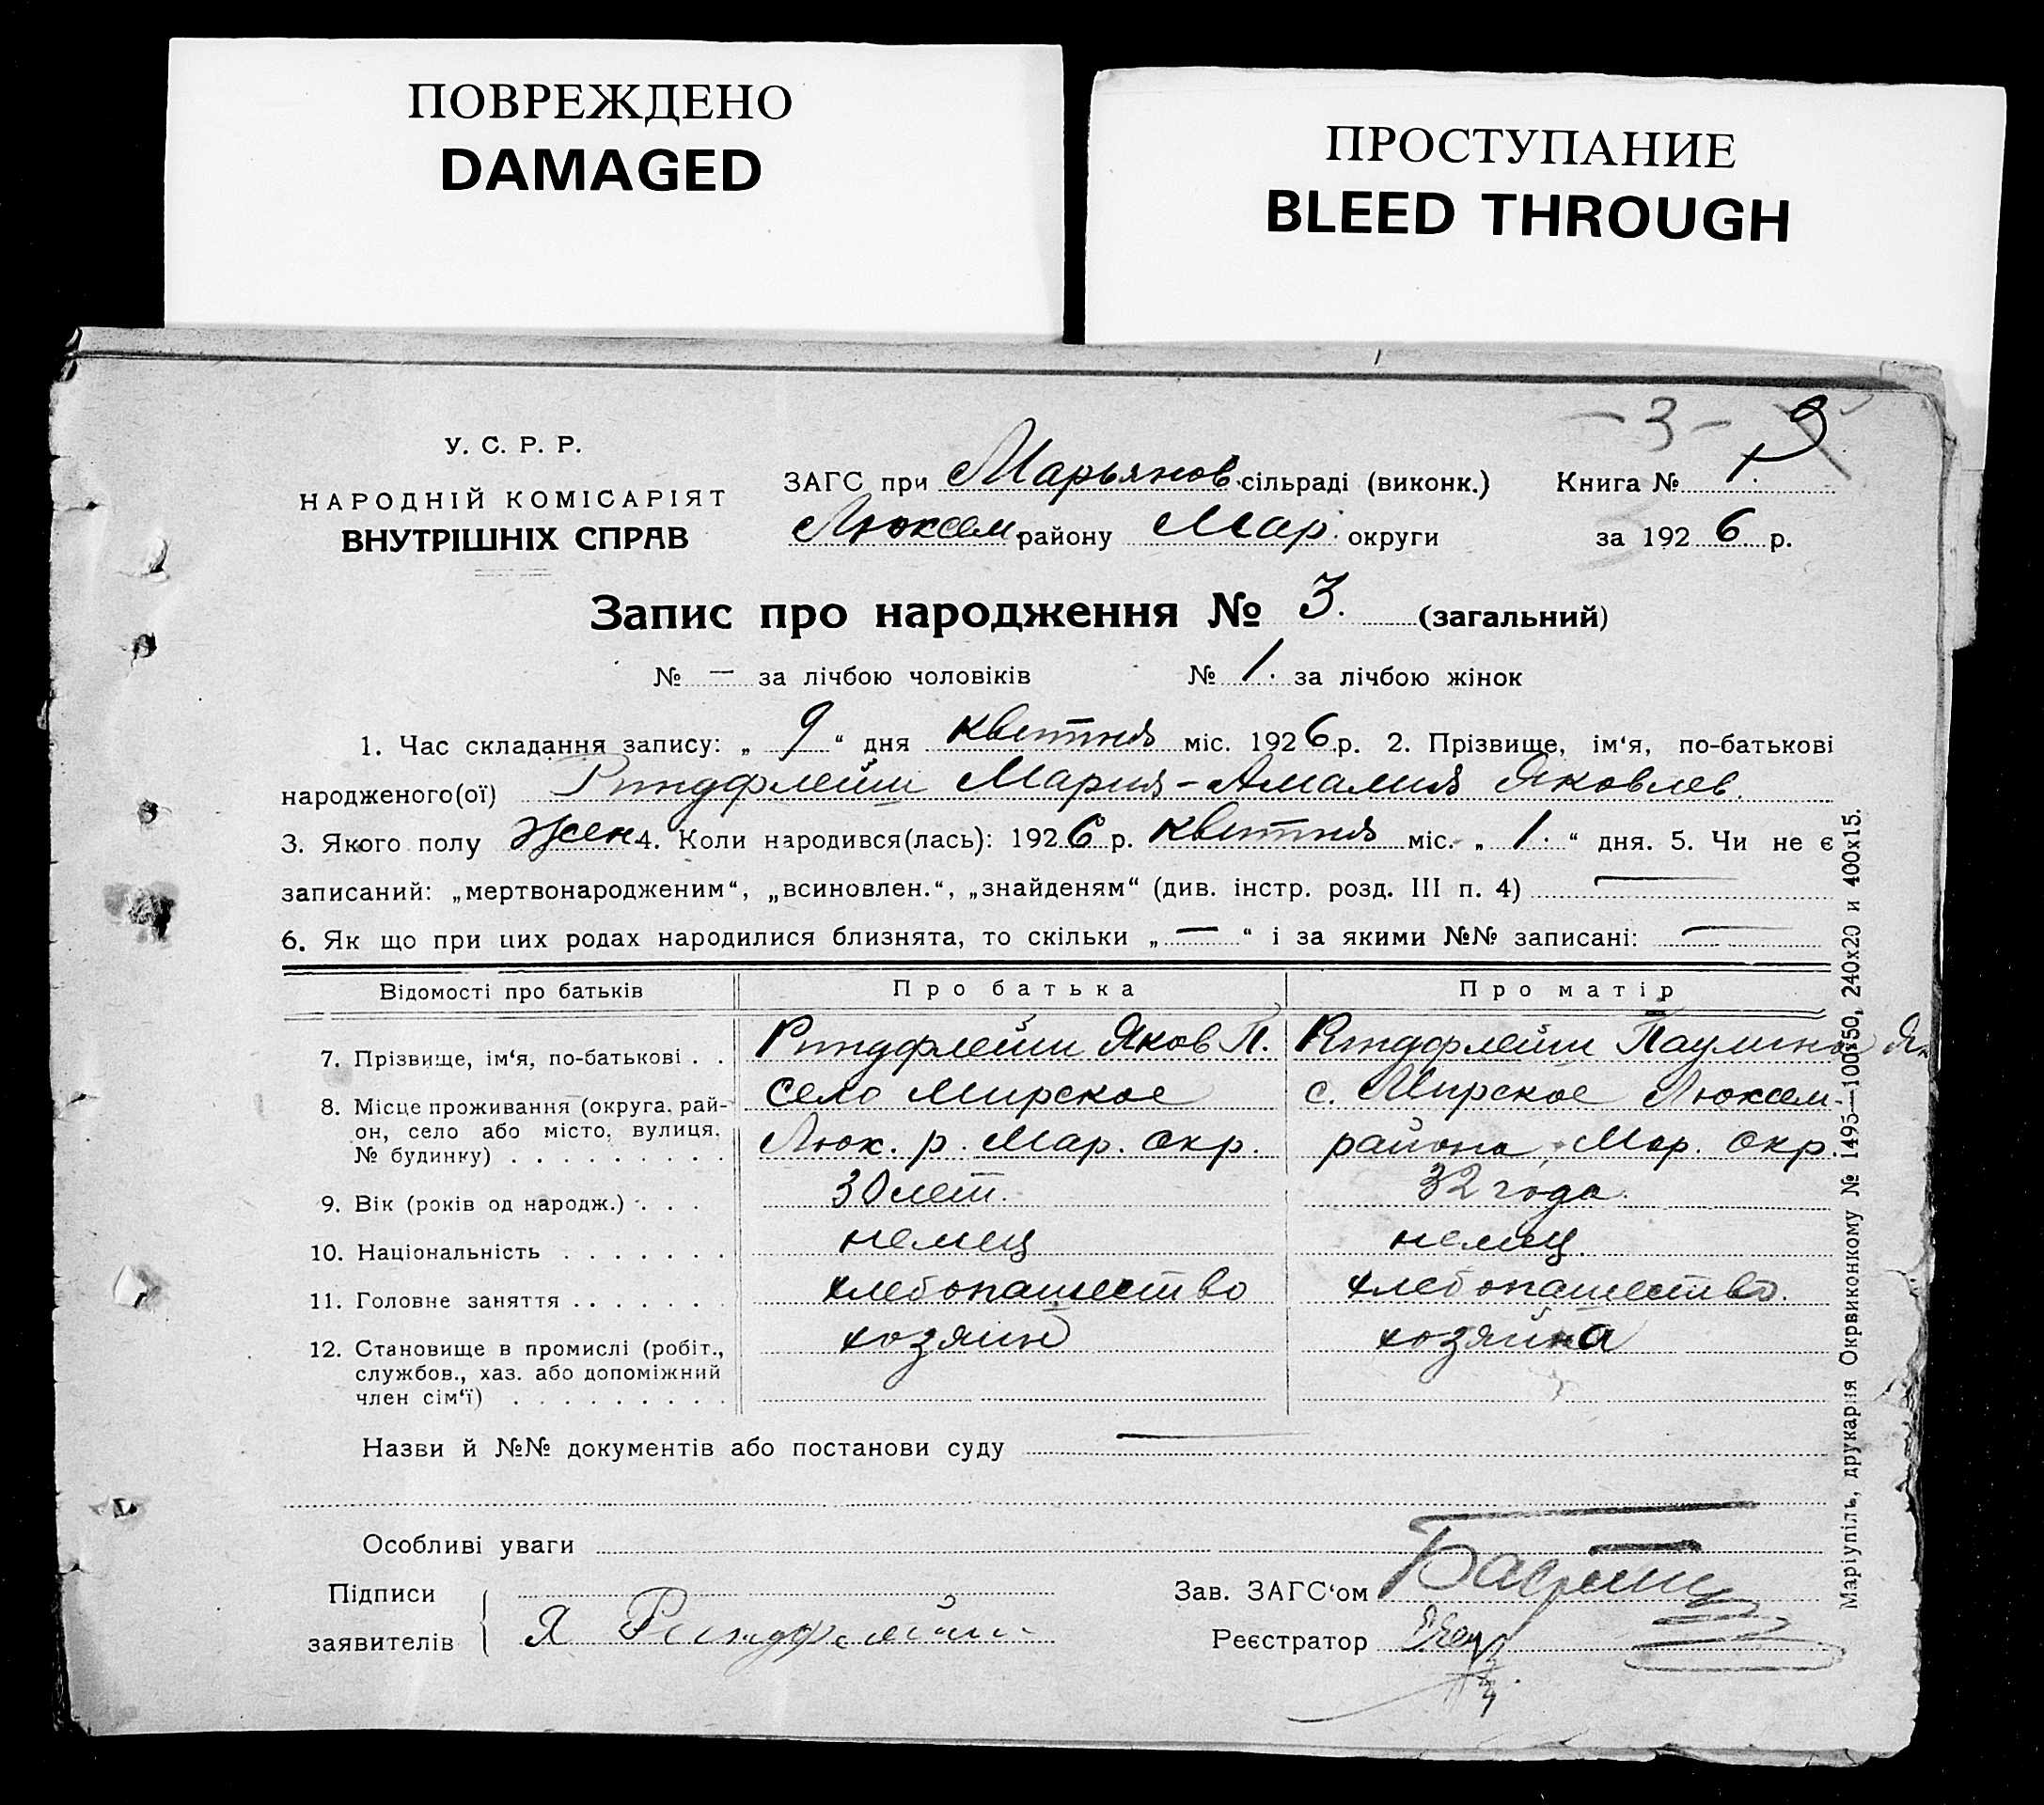 ПОВРЕЖДЕНО
DAMAGED
ПРОСТУПАНИЕ
BLEED THROUGH
-3-
У. С. Р. Р.
НАРОДНІЙ КОМІСАРІЯТ
ВНУТРІШНІХ СПРАВ
ЗАГС при Марьянов. сільраді (виконк.) Книга № 1.
Люксем. району Мар. округи за 1926 р.
Запис про народження № 3. (загальний)
№ — за лічбою чоловіків № 1. за лічбою жінок
1. Час складання запису: „ 9 “ дня квитня міс. 1926 р. 2. Прізвище, ім‘я, по-батькові
народженого(ої) Риндфлейш Мария-Амалия Яковлев.
3. Якого полу жен 4. Коли народився(лась): 1926 р. квитня міс. „ 1. “ дня. 5. Чи не є
записаний: „мертвонародженим“, „всиновлен.“, „знайденям“ (див. інстр. розд. III п. 4) —
6. Як що при цих родах народилися близнята, то скільки „ — “ і за якими №№ записані: —
Відомості про батьків Про батька Про матір
7. Прізвище, ім‘я, по-батькові . . Риндфлейш Яков П. Риндфлейш Паулина Як
8. Місце проживання (округа, рай- село Мирское с. Мирское Люксем.
он, село або місто, вулиця, Люк. р. Мар. Окр. района, Мар. Окр.
№ будинку) . . . . . . . . .
9. Вік (років од народж.) . . . 30 лет. 32 года.
10. Національність . . . . . . . немец немец.
11. Головне заняття . . . . . . . хлебопашество хлебопашество.
12. Становище в промислі (робіт., хозяин хозяйка
службов., хаз. або допоміжний
член сім‘ї) . . . . . . . . .
Назви й №№ документів або постанови суду —
Особливі уваги
Підписи
заявителів Я Риндфлейш
Зав. ЗАГС‘ом
Реєстратор
Маріупіль, друкарня Окрвиконкому № 1495—100×50, 240х20 и 400х15.